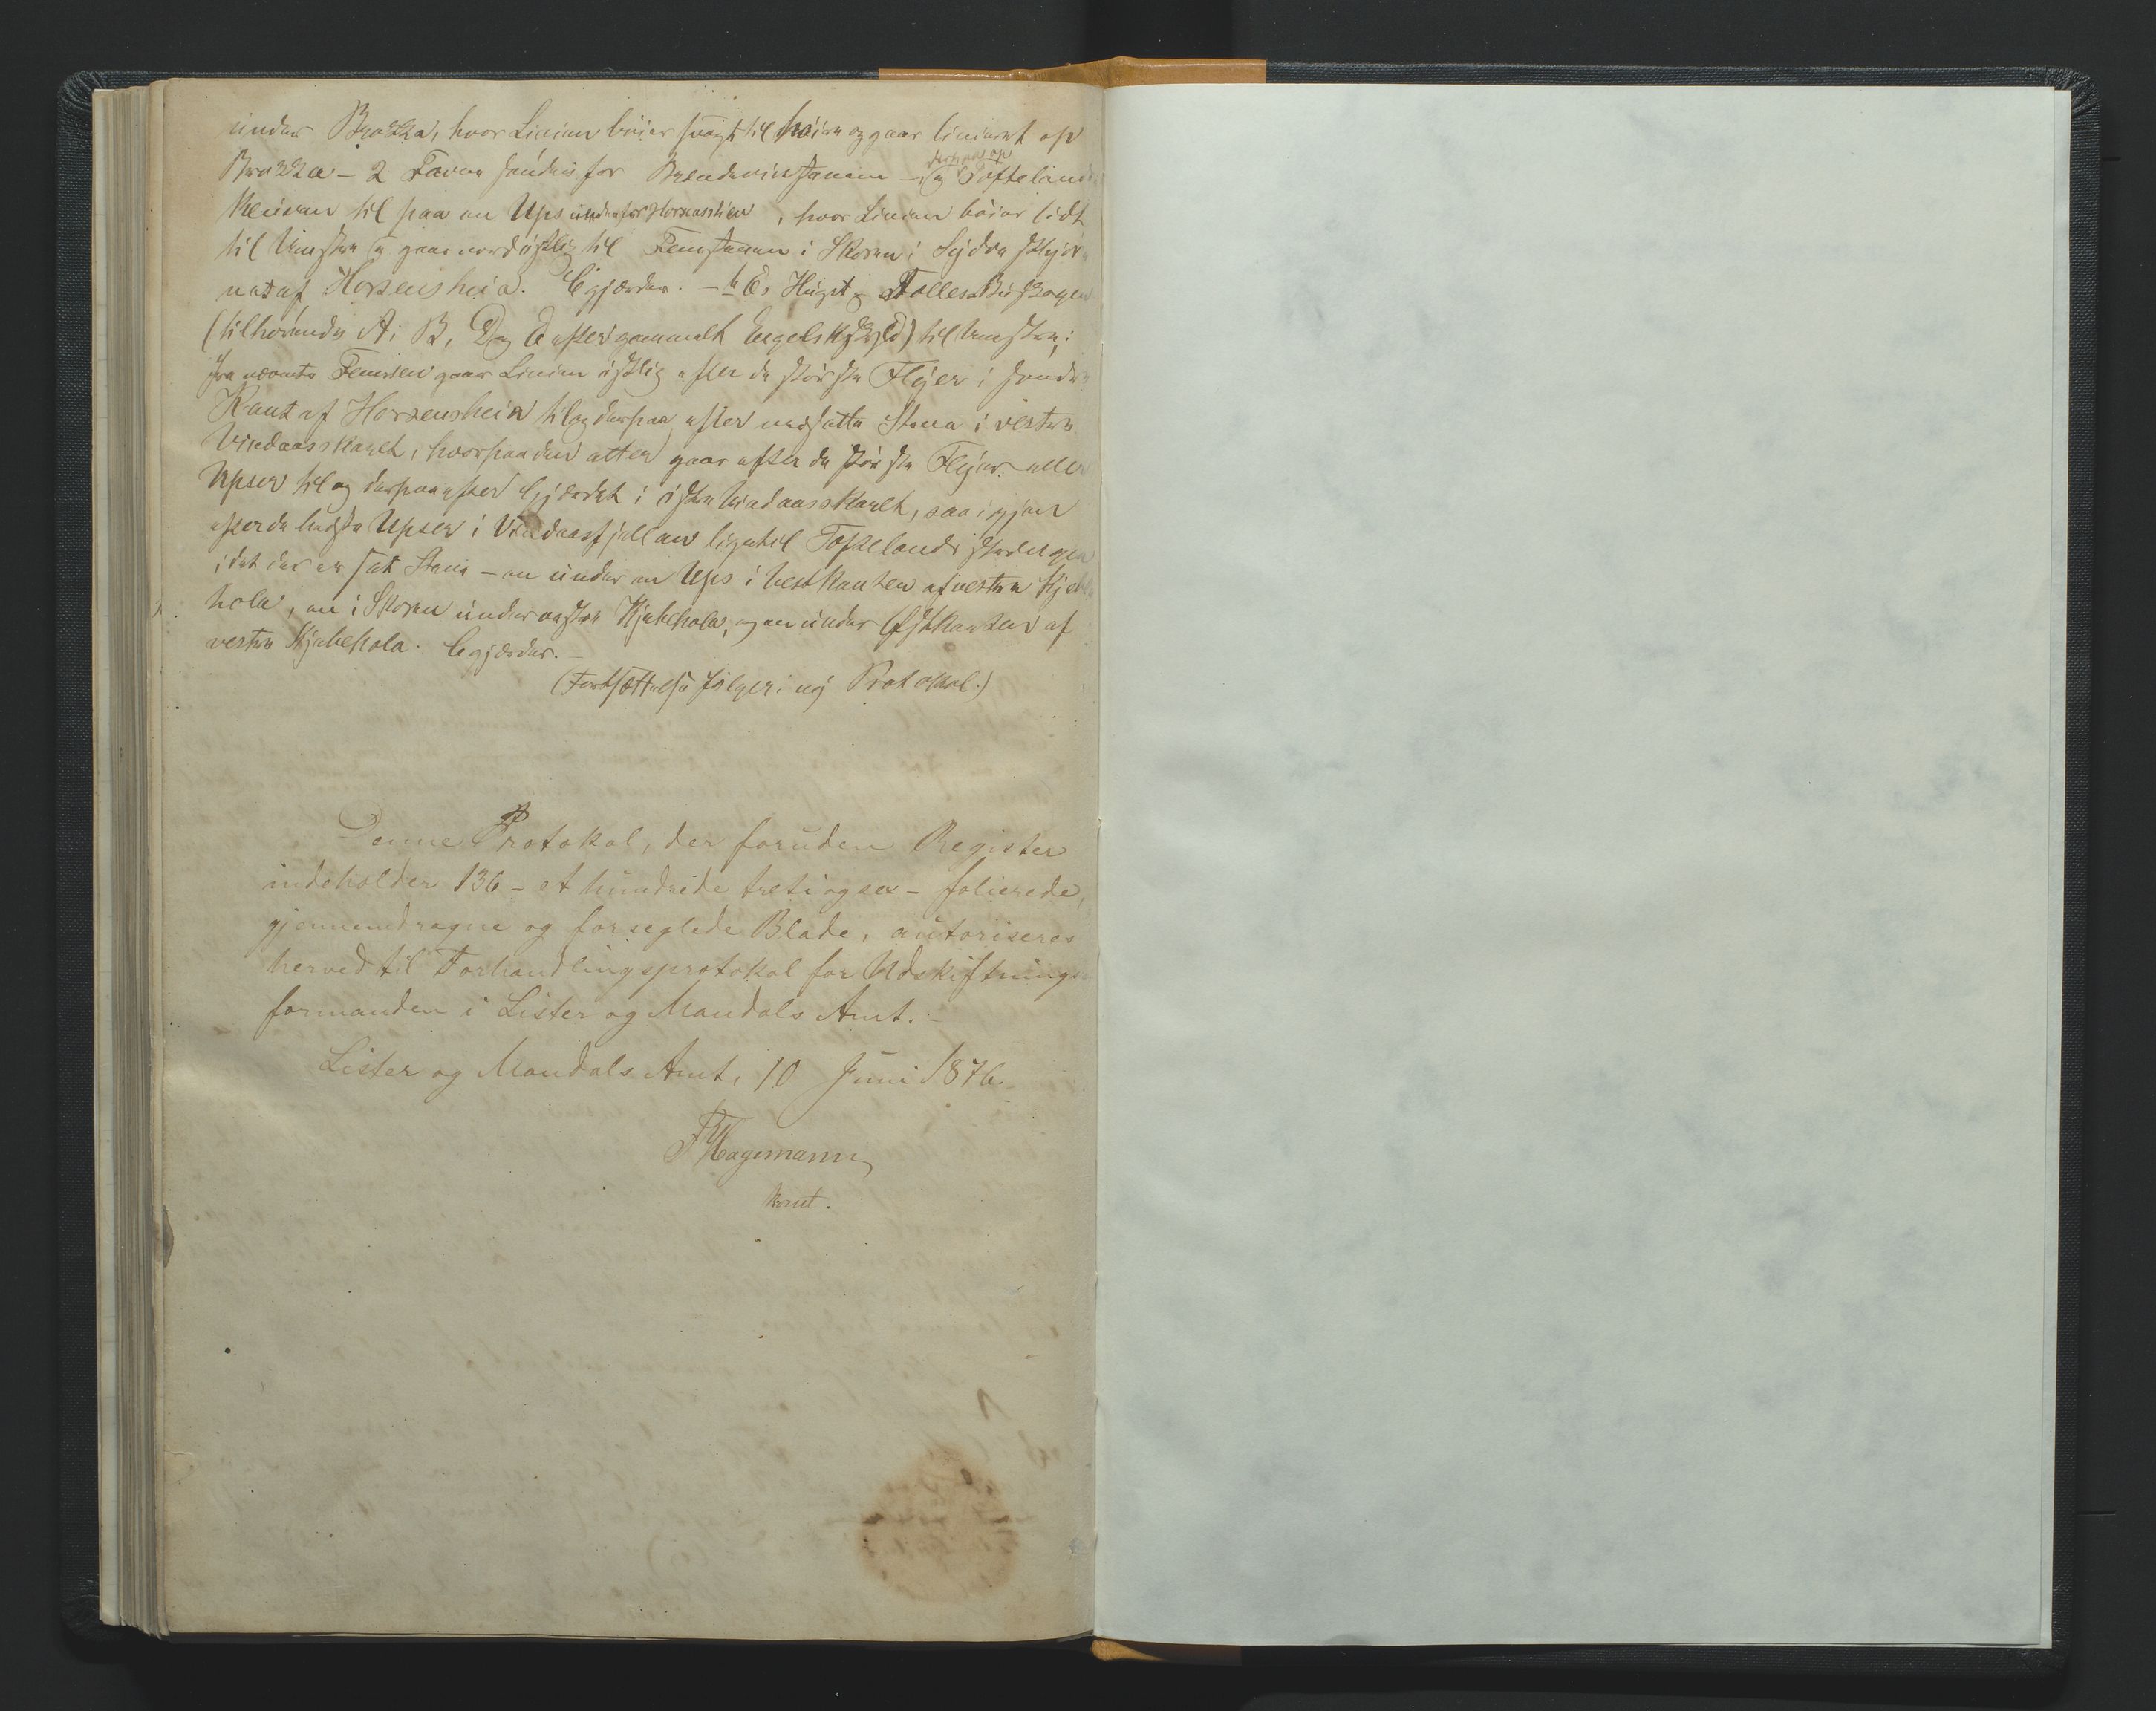 under Brækka, hvor Linien bøier svagt til høire og gaar lineret op
derpaa op
Brækka – 2 Favne søndenfor – og Tofteland
Kleiven til paa en Ups indenfor Horxasstien, hvor Linien bøier lidt
til Venstre og gaar nordøstlig til Femstenen i Skoren i Sydvesthjør-
net af Horxensheia. E gjærder. – b E. Høgst og Follesbø skogen
(tilhørende A, B, D og E efter gammelt Engelskskyld) til Venstre;
fra nævnte Femsten gaar Linien østlig efter de største Flyer i søndre
Kant af Horxensheia til og derpaa efter nedsatte Stene i vestre
Vindaasskaret, hvorpaa den atter gaar efter de største Flyer eller
Upser til og derpaa efter Gjærdet i østre Vindaasskaret, saa igjen
efter de høieste Upser i Vindaasfjellene lige til
idet der er sat Stene – en under en Ups i Vestkanten af vestre Kjebe
hola, en i Skoren under østre Kjebehola, og en under Østkanten af
vestre Kjebehola. E gjærder. –
(Fortsættelse følger i ny Protokol.)
Denne Protokol, der foruden Register
indeholder 136 – et hundrede treti og sex – folierede,
gjennemdragne og forseglede Blade, autoriseres
herved til Forhandlingsprotokol for Udskiftnings-
formanden i Lister og Mandals Amt. –
Lister og Mandals Amt, 10 Juni 1876.
Hagemann
konst.